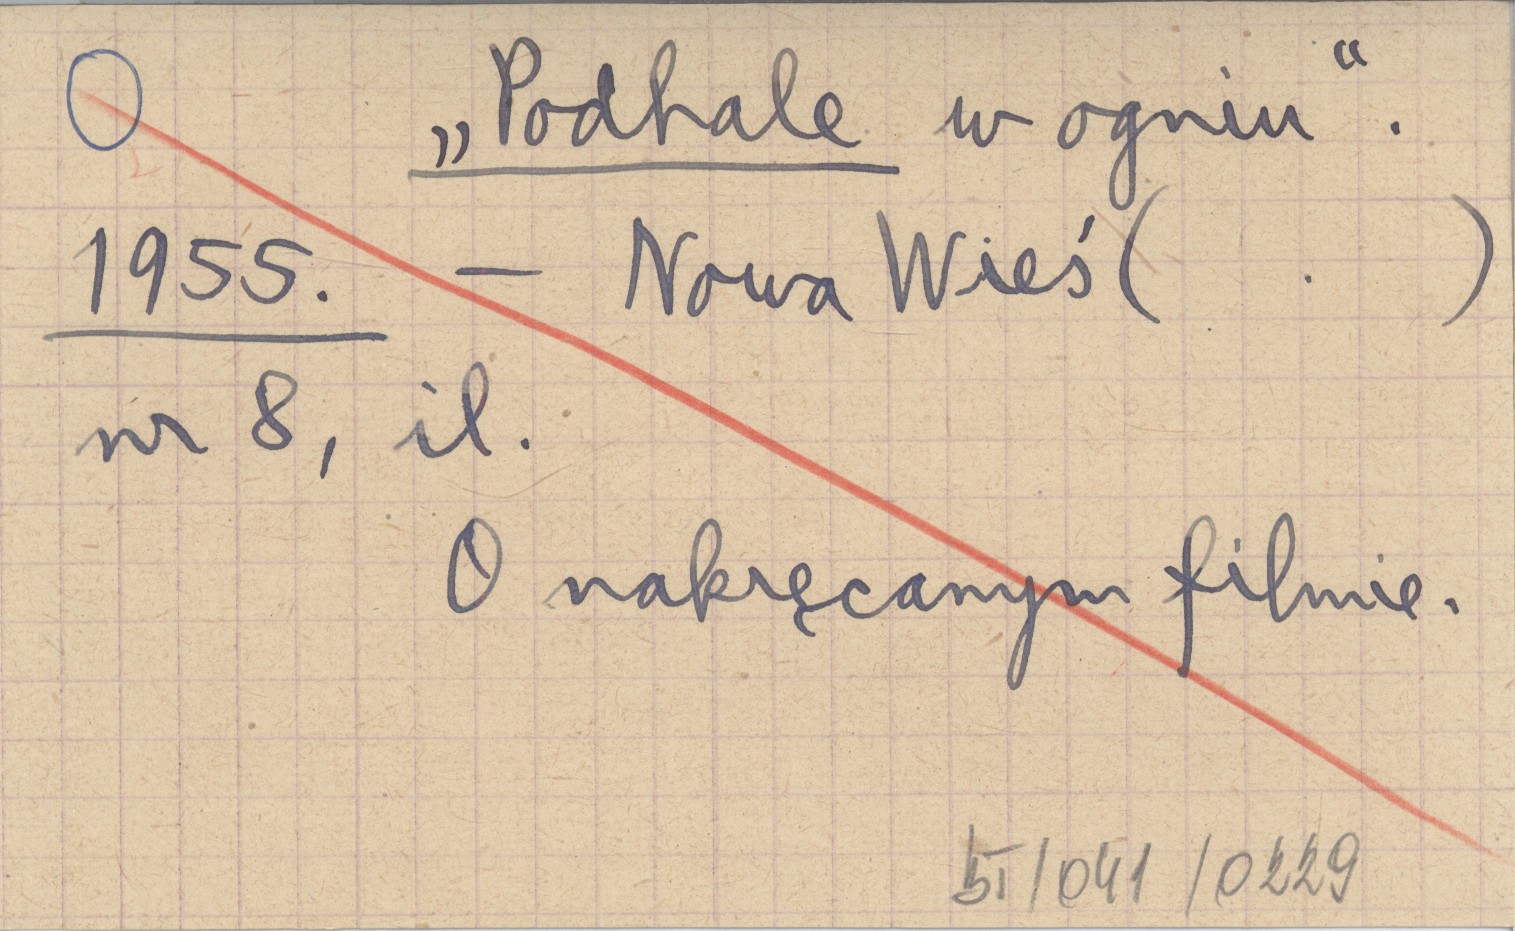 O „Podhale w ogniu".
1955. — Nowa Wieś ( . )
nr 8, il.
O nakręcanym filmie.
/041/0229